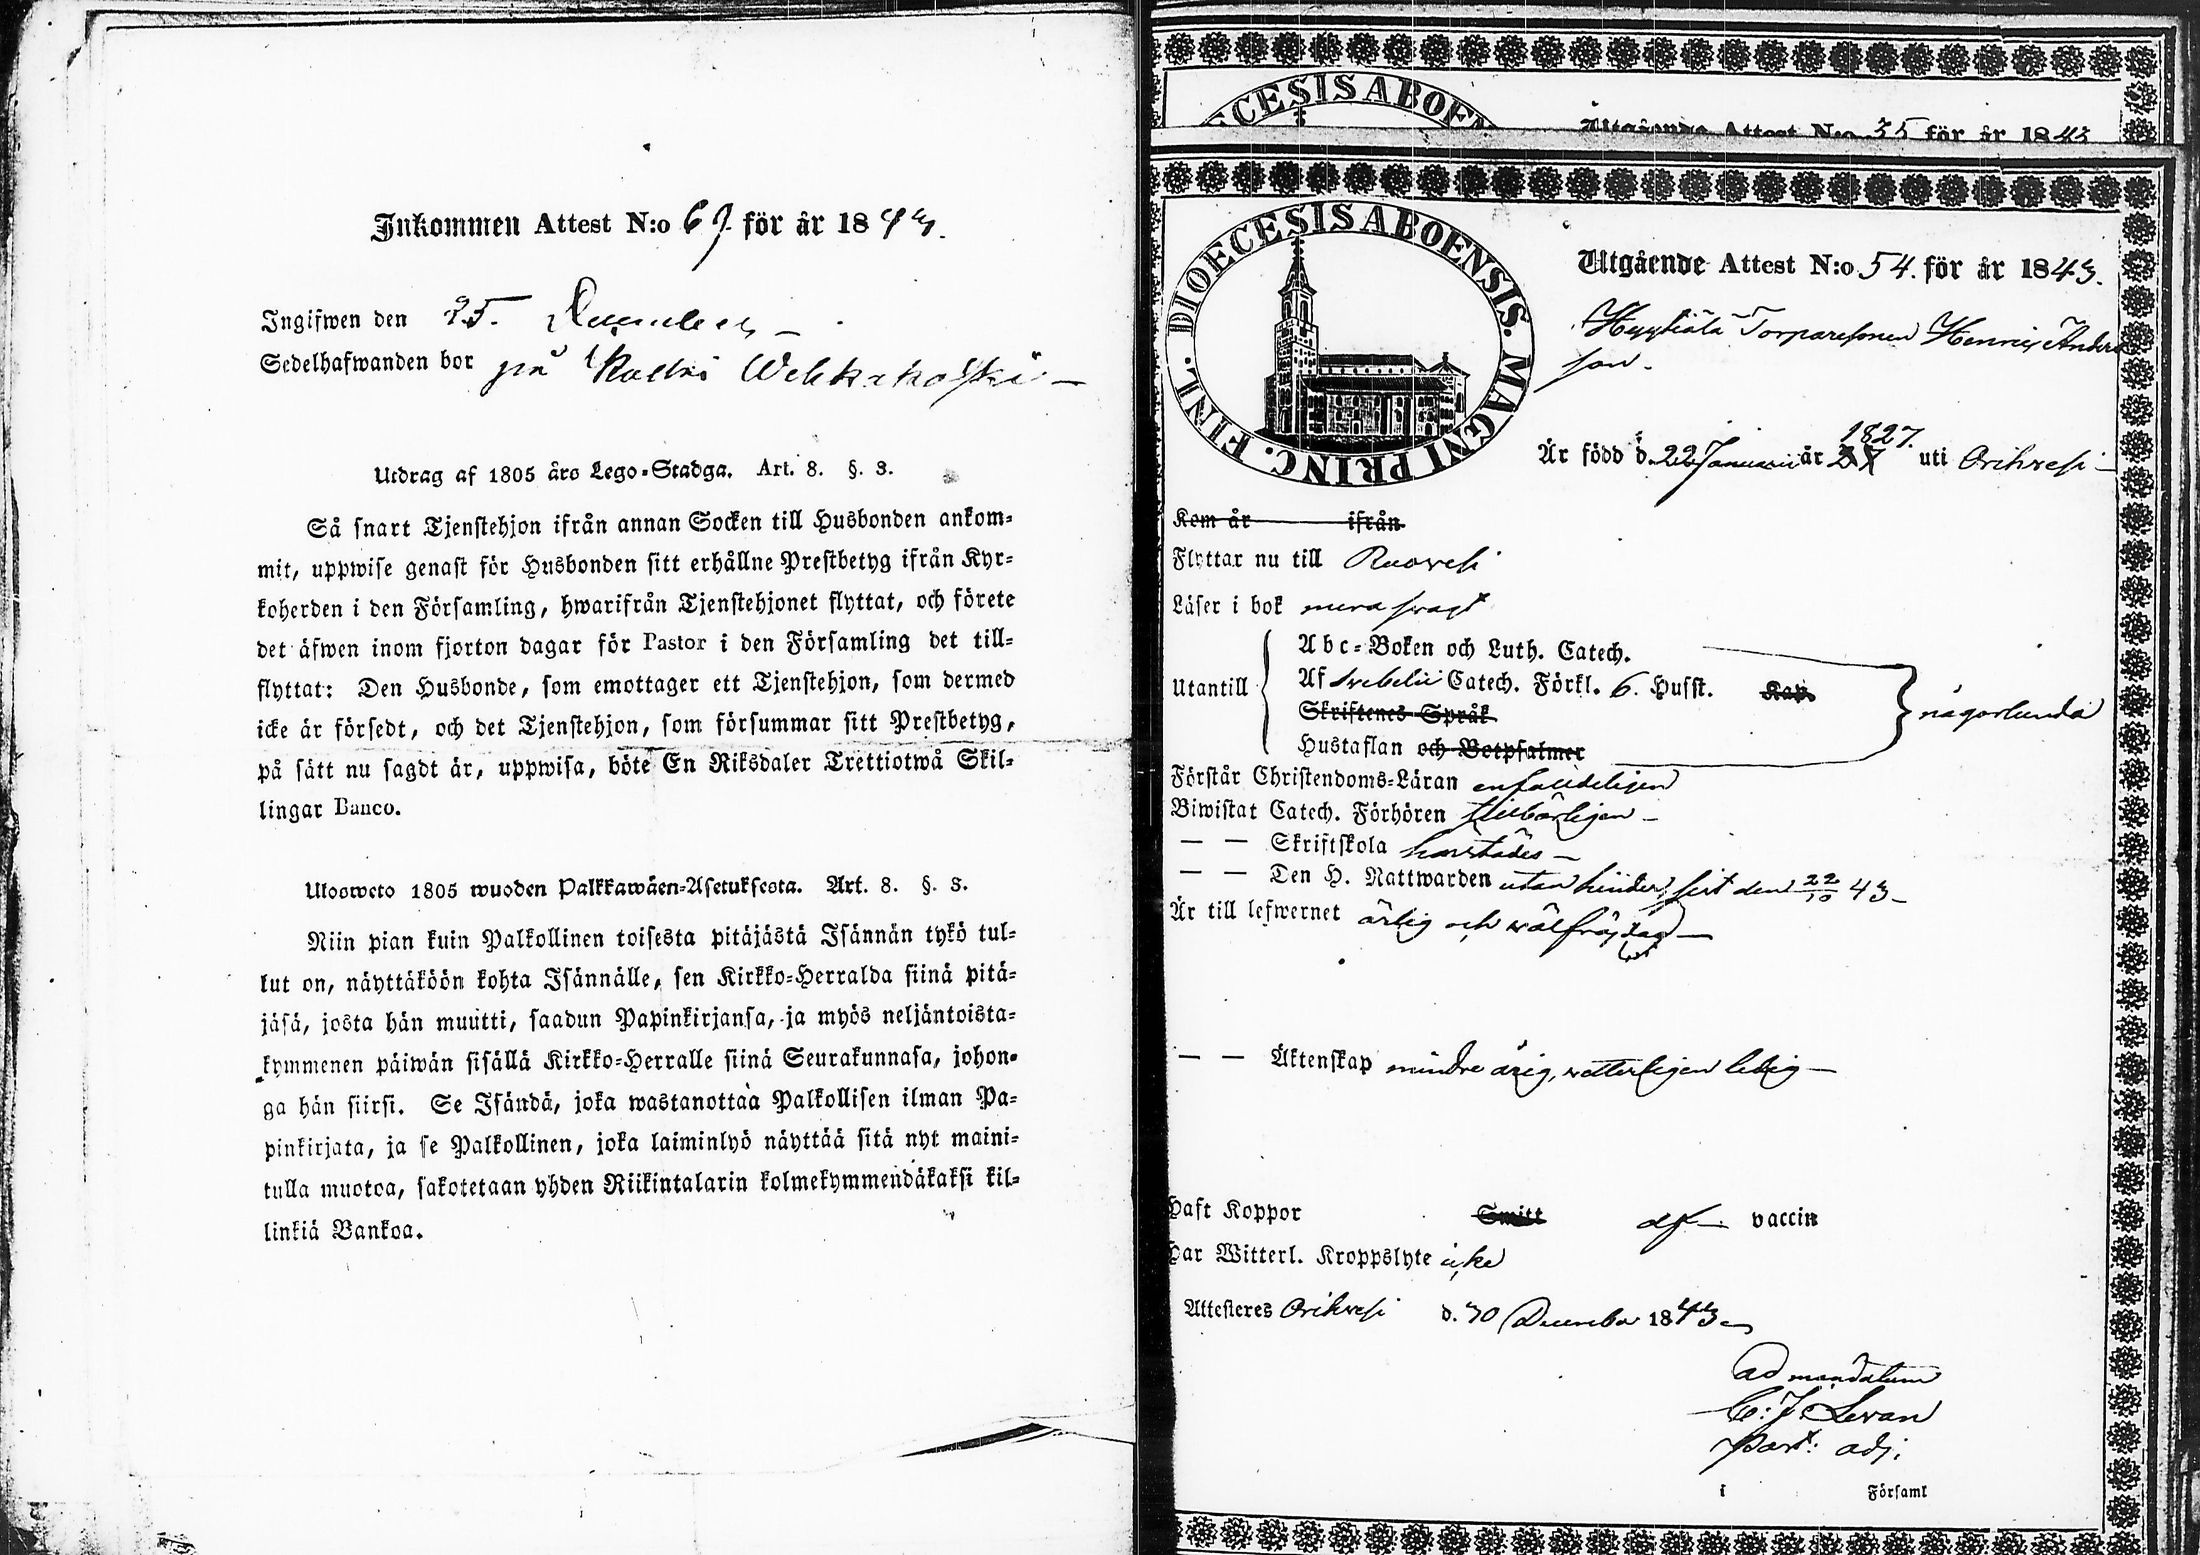 Inkommen Attest N:o 67 för år 1843.
Ingifwen den 25. December
Sedelhafwanden bor på
Utdrag af 1805 års Lego-Stadga. Art. 8. §. 3.
Så snart Tjenstehjon ifrån annan Socken till Husbonden ankom-
mit, uppwise genast för Husbonden sitt erhållne Prestbetyg ifrån Kyr-
koherden i den Församling, hwarifrån Tjenstehjonet flyttat, och förete
det äfwen inom fjorton dagar för Pastor i den Församling det till-
flyttat: Den Husbonde, som emottager ett Tjenstehjon, som dermed
icke är försedt, och det Tjenstehjon, som försummar sitt Prestbetyg,
på sätt nu sagdt är, uppwisa, böte En Riksdaler Trettiotwå Skil-
lingar Banco.
Ulosweto 1805 wuoden Palkkawäen-Asetuksesta. Art. 8. §. 3.
Niin pian kuin Palkollinen toisesta pitäjästä Isännän tykö tul-
lut on, näyttäköön kohta Isännälle, sen Kirkko-Herralda siinä pitä-
jäsä, josta hän muutti, saadun Papinkirjansa, ja myös neljäntoista-
kymmenen päiwän sisällä Kirkko-Herralle siinä Seurakunnasa, johon-
ga hän siirsi. Se Isändä, joka wastanottaa Palkollisen ilman Pa-
pinkirjata, ja se Palkollinen, joka laiminlyö näyttää sitä nyt maini-
tulla muotoa, sakotetaan yhden Riikintalarin kolmekymmendäkaksi kil-
linkiä Bankoa.
ECESIS ABOEN
Utgående Attest N:o 35 för år 1843
DIOECESIS ABOENSIS. MAGNI PRINC. FINL.
Utgående Attest N:o 54. för år 1843.
Torparesonen Henric Anders
son.
Är född d. 22 Januarii år 1827. uti Orihvesi
Kom år ifrån
Flyttar nu till Ruovesi
Läser i bok mera svagt
Utantill
Abc-Boken och Luth. Catech.
Af Svebelii Catech. Förkl. 6. Hufst. Kap.
Skriftenes Språk
Hustaflan och Botpsalmer
någorlunda
Förstår Christendoms-Läran enfaldeligen
Biwistat Catech. Förhören skickligen
— — Skriftskola härstädes —
— — Den H. Nattwarden utan hinder, sist den 22/10 43
Är till lefwernet ärlig och wälfräjdad —
— — Äktenskap mindre årig, vetterligen ledig —
Haft Koppor Smitt af vaccin
Har Witterl. Kroppslyte icke
Attesteres Orihvesi d. 30 December 1843
ad mandatum
C: J. Levan
Past: adj:
i Församl